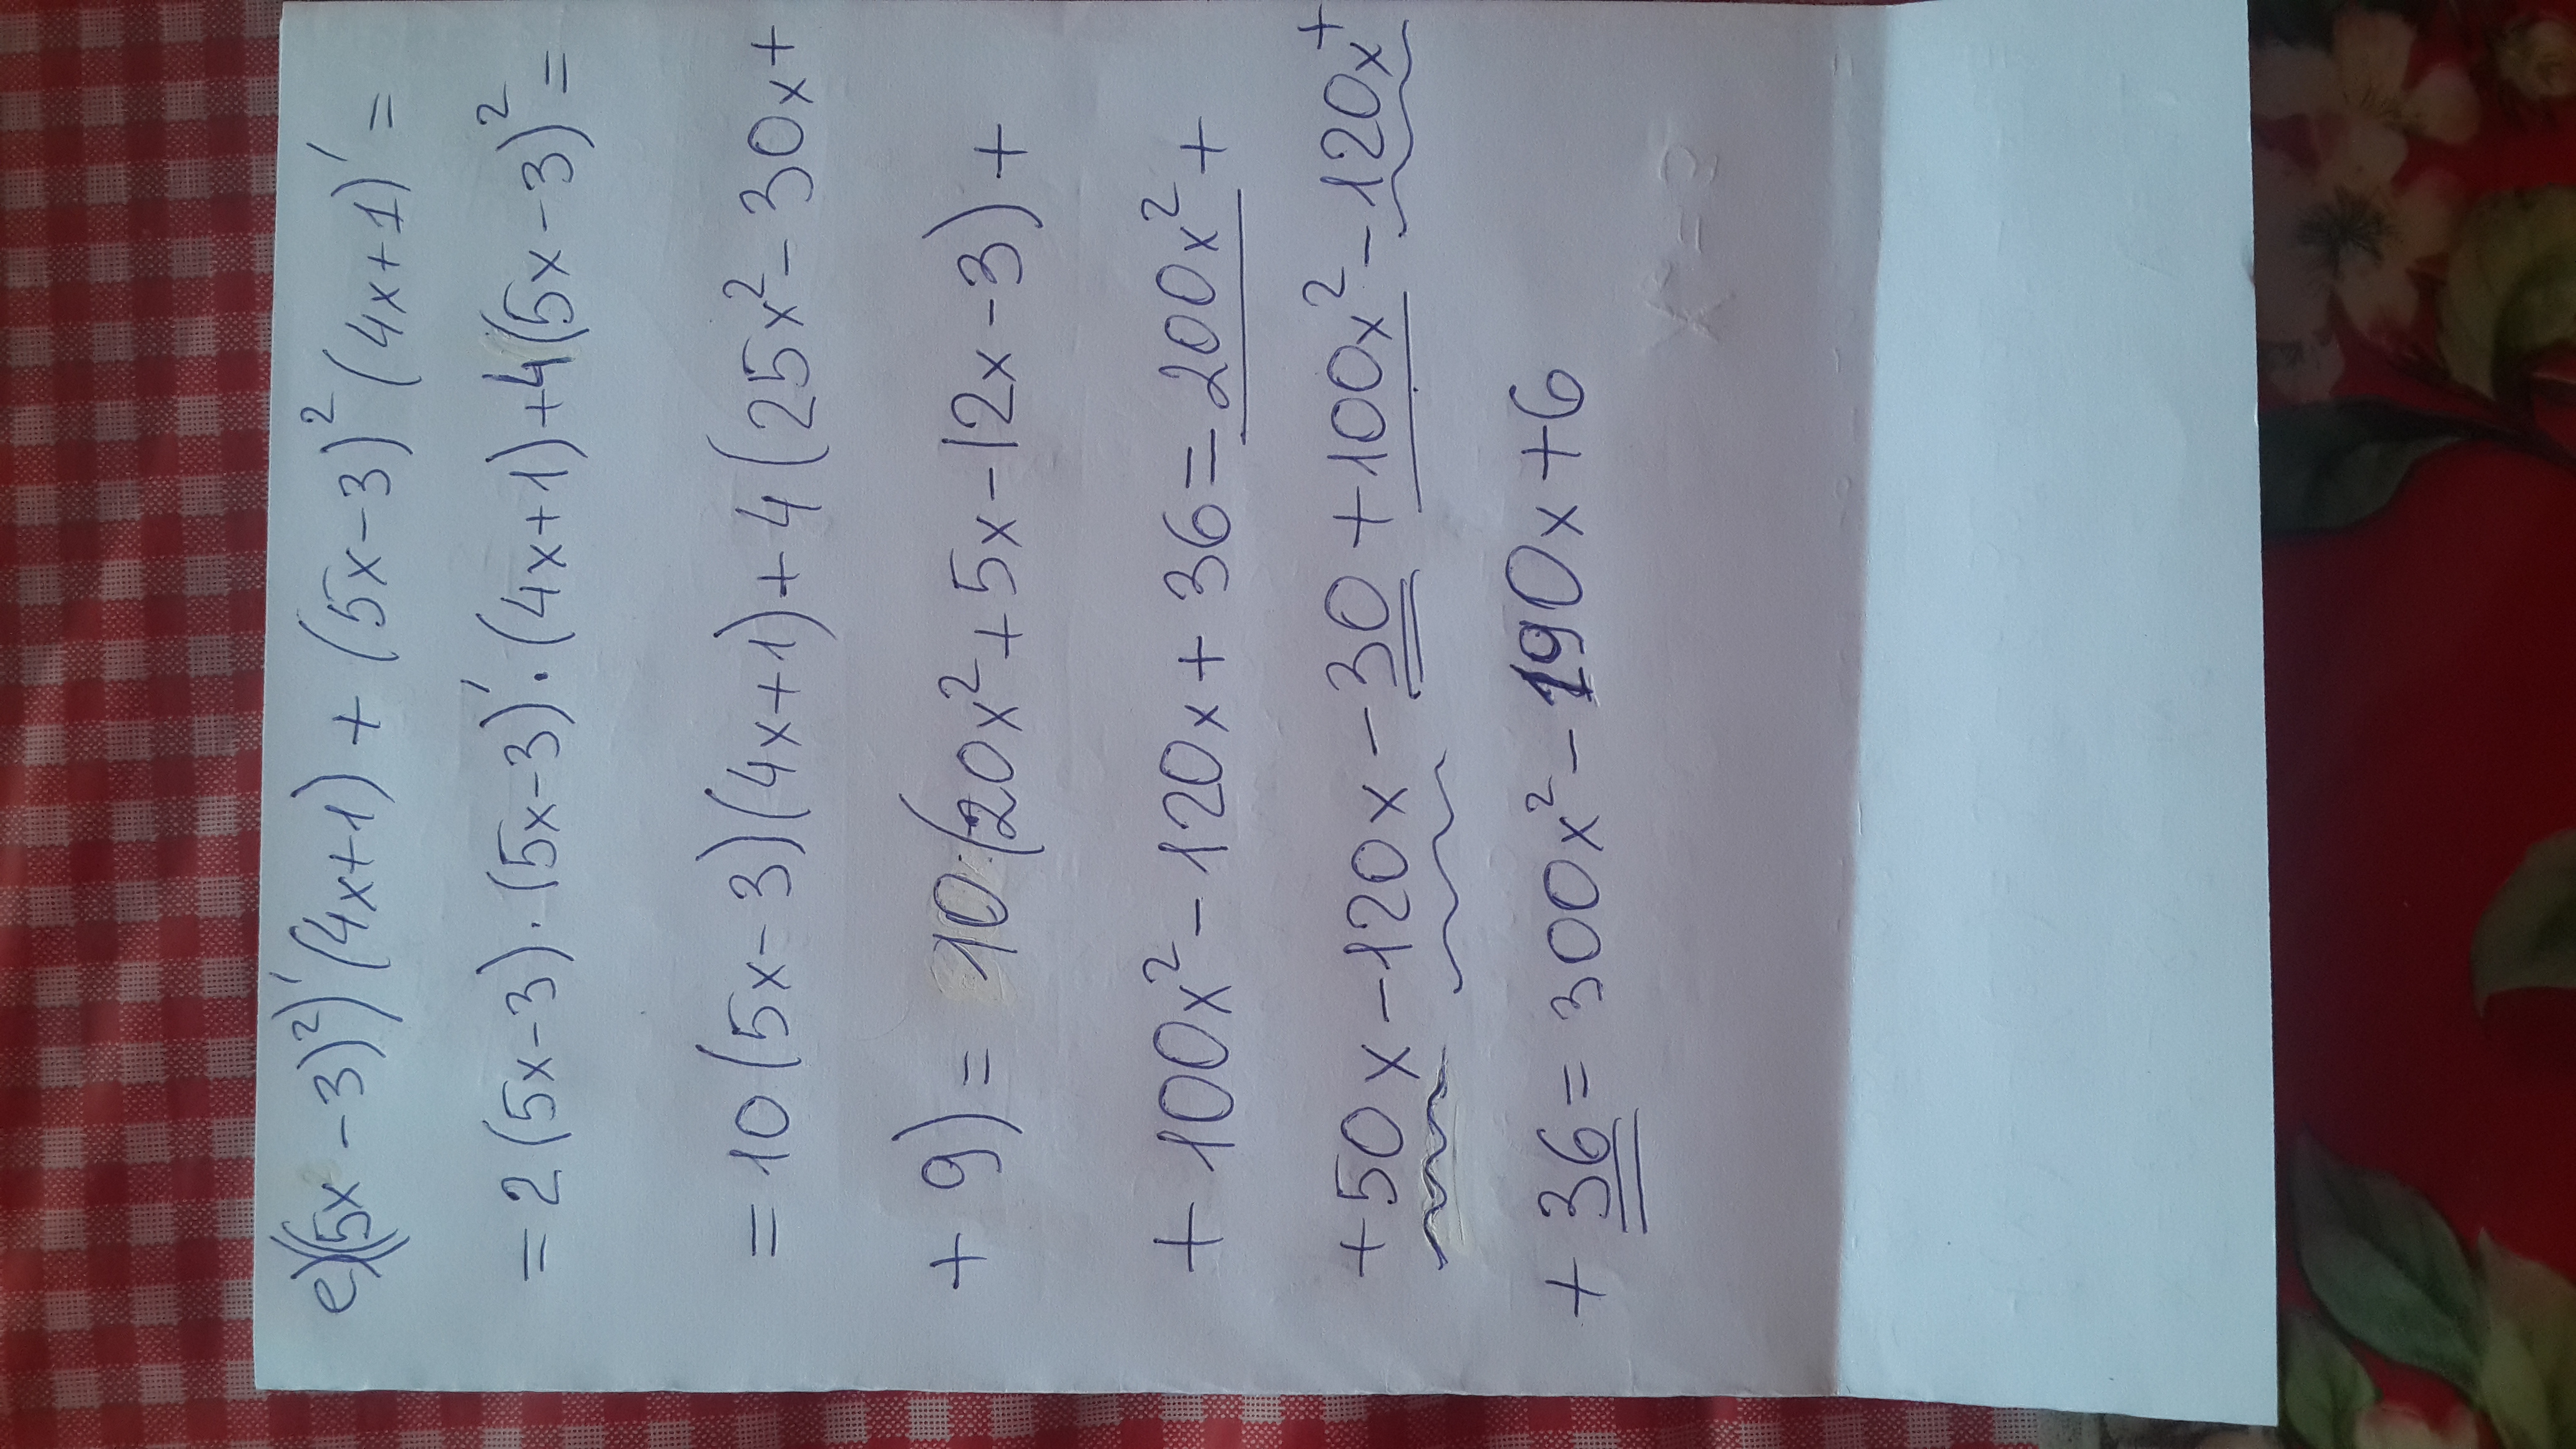 e)((5x-3)²)'(4x+1)+(5x-3)²(4x+1)'=
=2(5x-3)·(5x-3)'·(4x+1)+4(5x-3)²=
=10(5x-3)(4x+1)+4(25x²-30x+
+9)= 10·(20x²+5x-12x-3)+
+100x²-120x+36=200x²+
+50x-120x-30+100x²-120x+
+36=300x²-190x+6